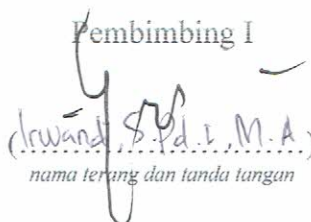 Pembimbing I
(Irwandi, S.Pd.I, M.A)
nama terang dan tanda tangan